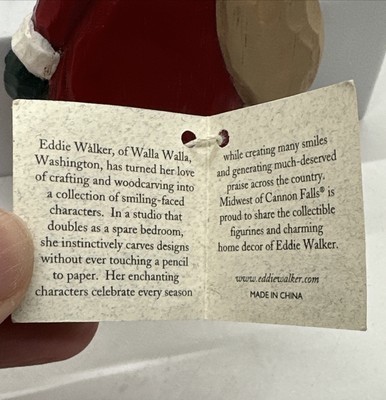 Eddie Walker, of Walla Walla,
Washington, has turned her love
of crafting and woodcarving into
a collection of smiling-faced
characters. In a studio that
doubles as a spare bedroom,
she instinctively carves designs
without ever touching a pencil
to paper. Her enchanting
characters celebrate every season
while creating many smiles
and generating much-deserved
praise across the country.
Midwest of Cannon Falls® is
proud to share the collectible
figurines and charming
home decor of Eddie Walker.
www.eddiewalker.com
MADE IN CHINA